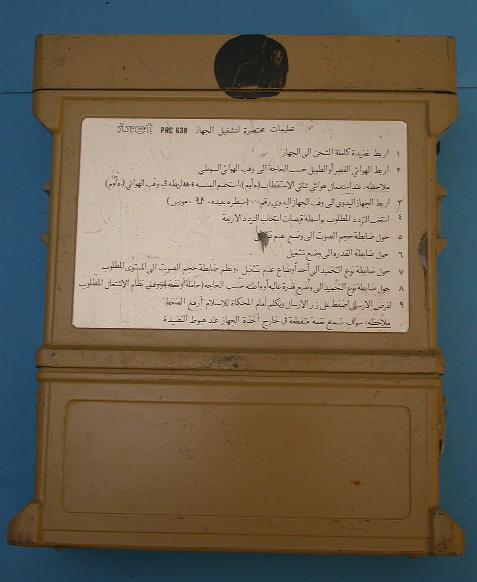 iret PRC 638 تعليمات مختصرة لتشغيل الجهاز
١ اربط نضيدة كاملة الشحن الى الجهاز
٢ اربط الهوائي القصير أو الطويل حسب الحاجة الى وقب الهوائي
ملاحظه: عند استعمال هوائي ثنائي الاستقطاب استخدم الى وقب الهوائي
٣ اربط الجهاز اليدوي الى وقب الجهاز اليدوي رقم
٤ انتخب التردد المطلوب بواسطة قبضات انتخاب التردد الاربعة
٥ حول ضابطة حجم الصوت الى وضع عدم تشغيل
٦ حول ضابطة القدره الى وضع تشغيل
٧ حول ضابطة نوع التخميد الى أحد أوضاع عدم تشغيل ونظم ضابطة حجم الصوت الى المستوى المطلوب
٨ حول ضابطة نوع التخميد الى وضع قدرة عاليه أو واطئه حسب الحاجه نظام الاشتغال المطلوب
٩ لغرض الارسال اضغط على زر الارسال وتكلم أمام للاستلام أرفع الضغط
ملاحظه: سوف تسمع نغمة متقطعة في خارج أخذة الجهاز عند هبوط النضيدة